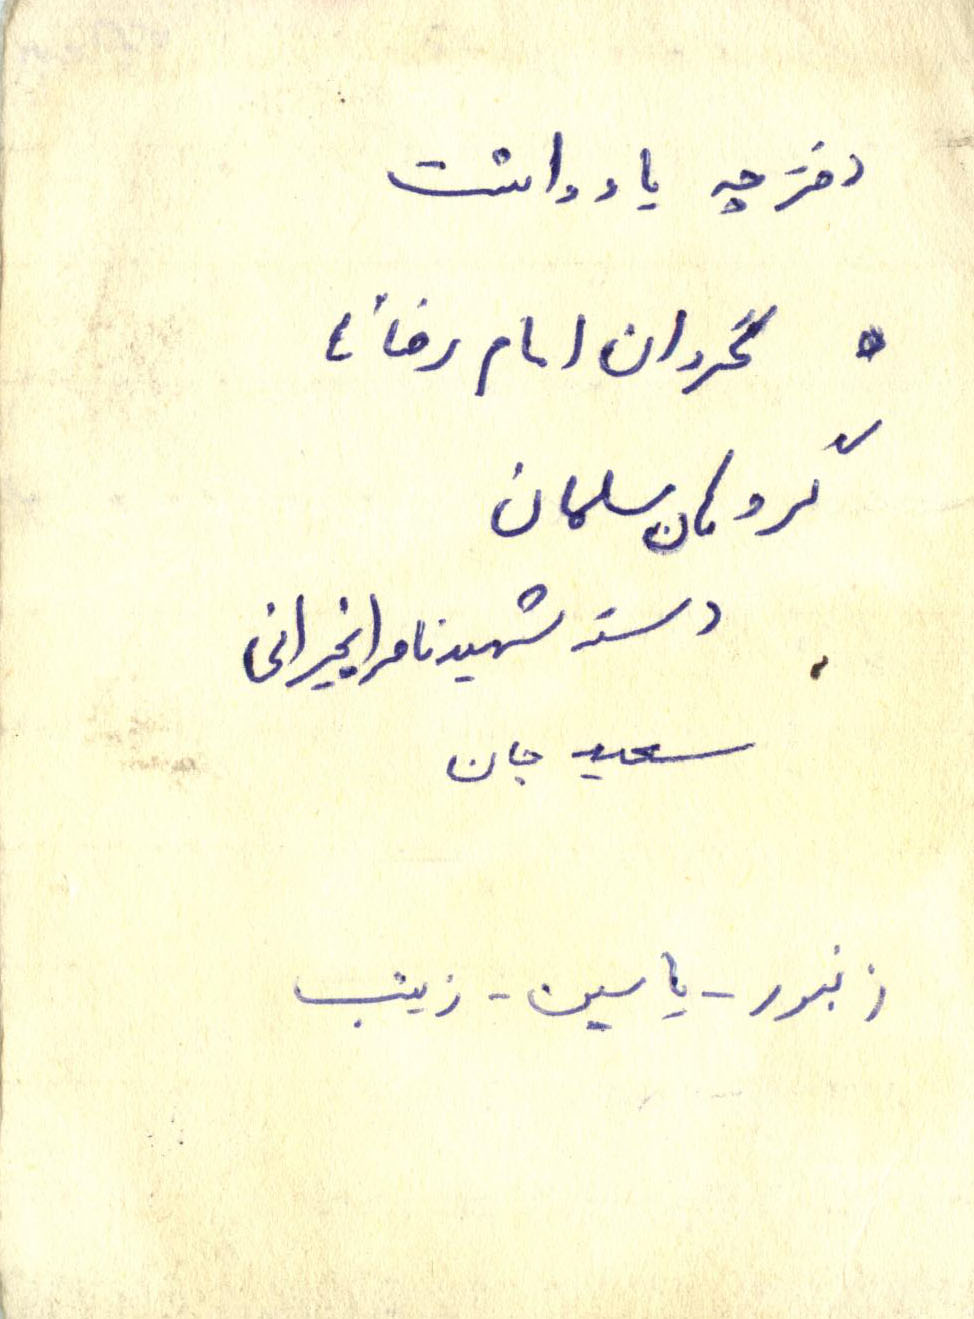 دفترچه یادداشت
گردان امام رضا ع
گروهان سلمان
دسته شهید ناصر انجیرانی
سعید جان
زنبور - یاسین - زینب